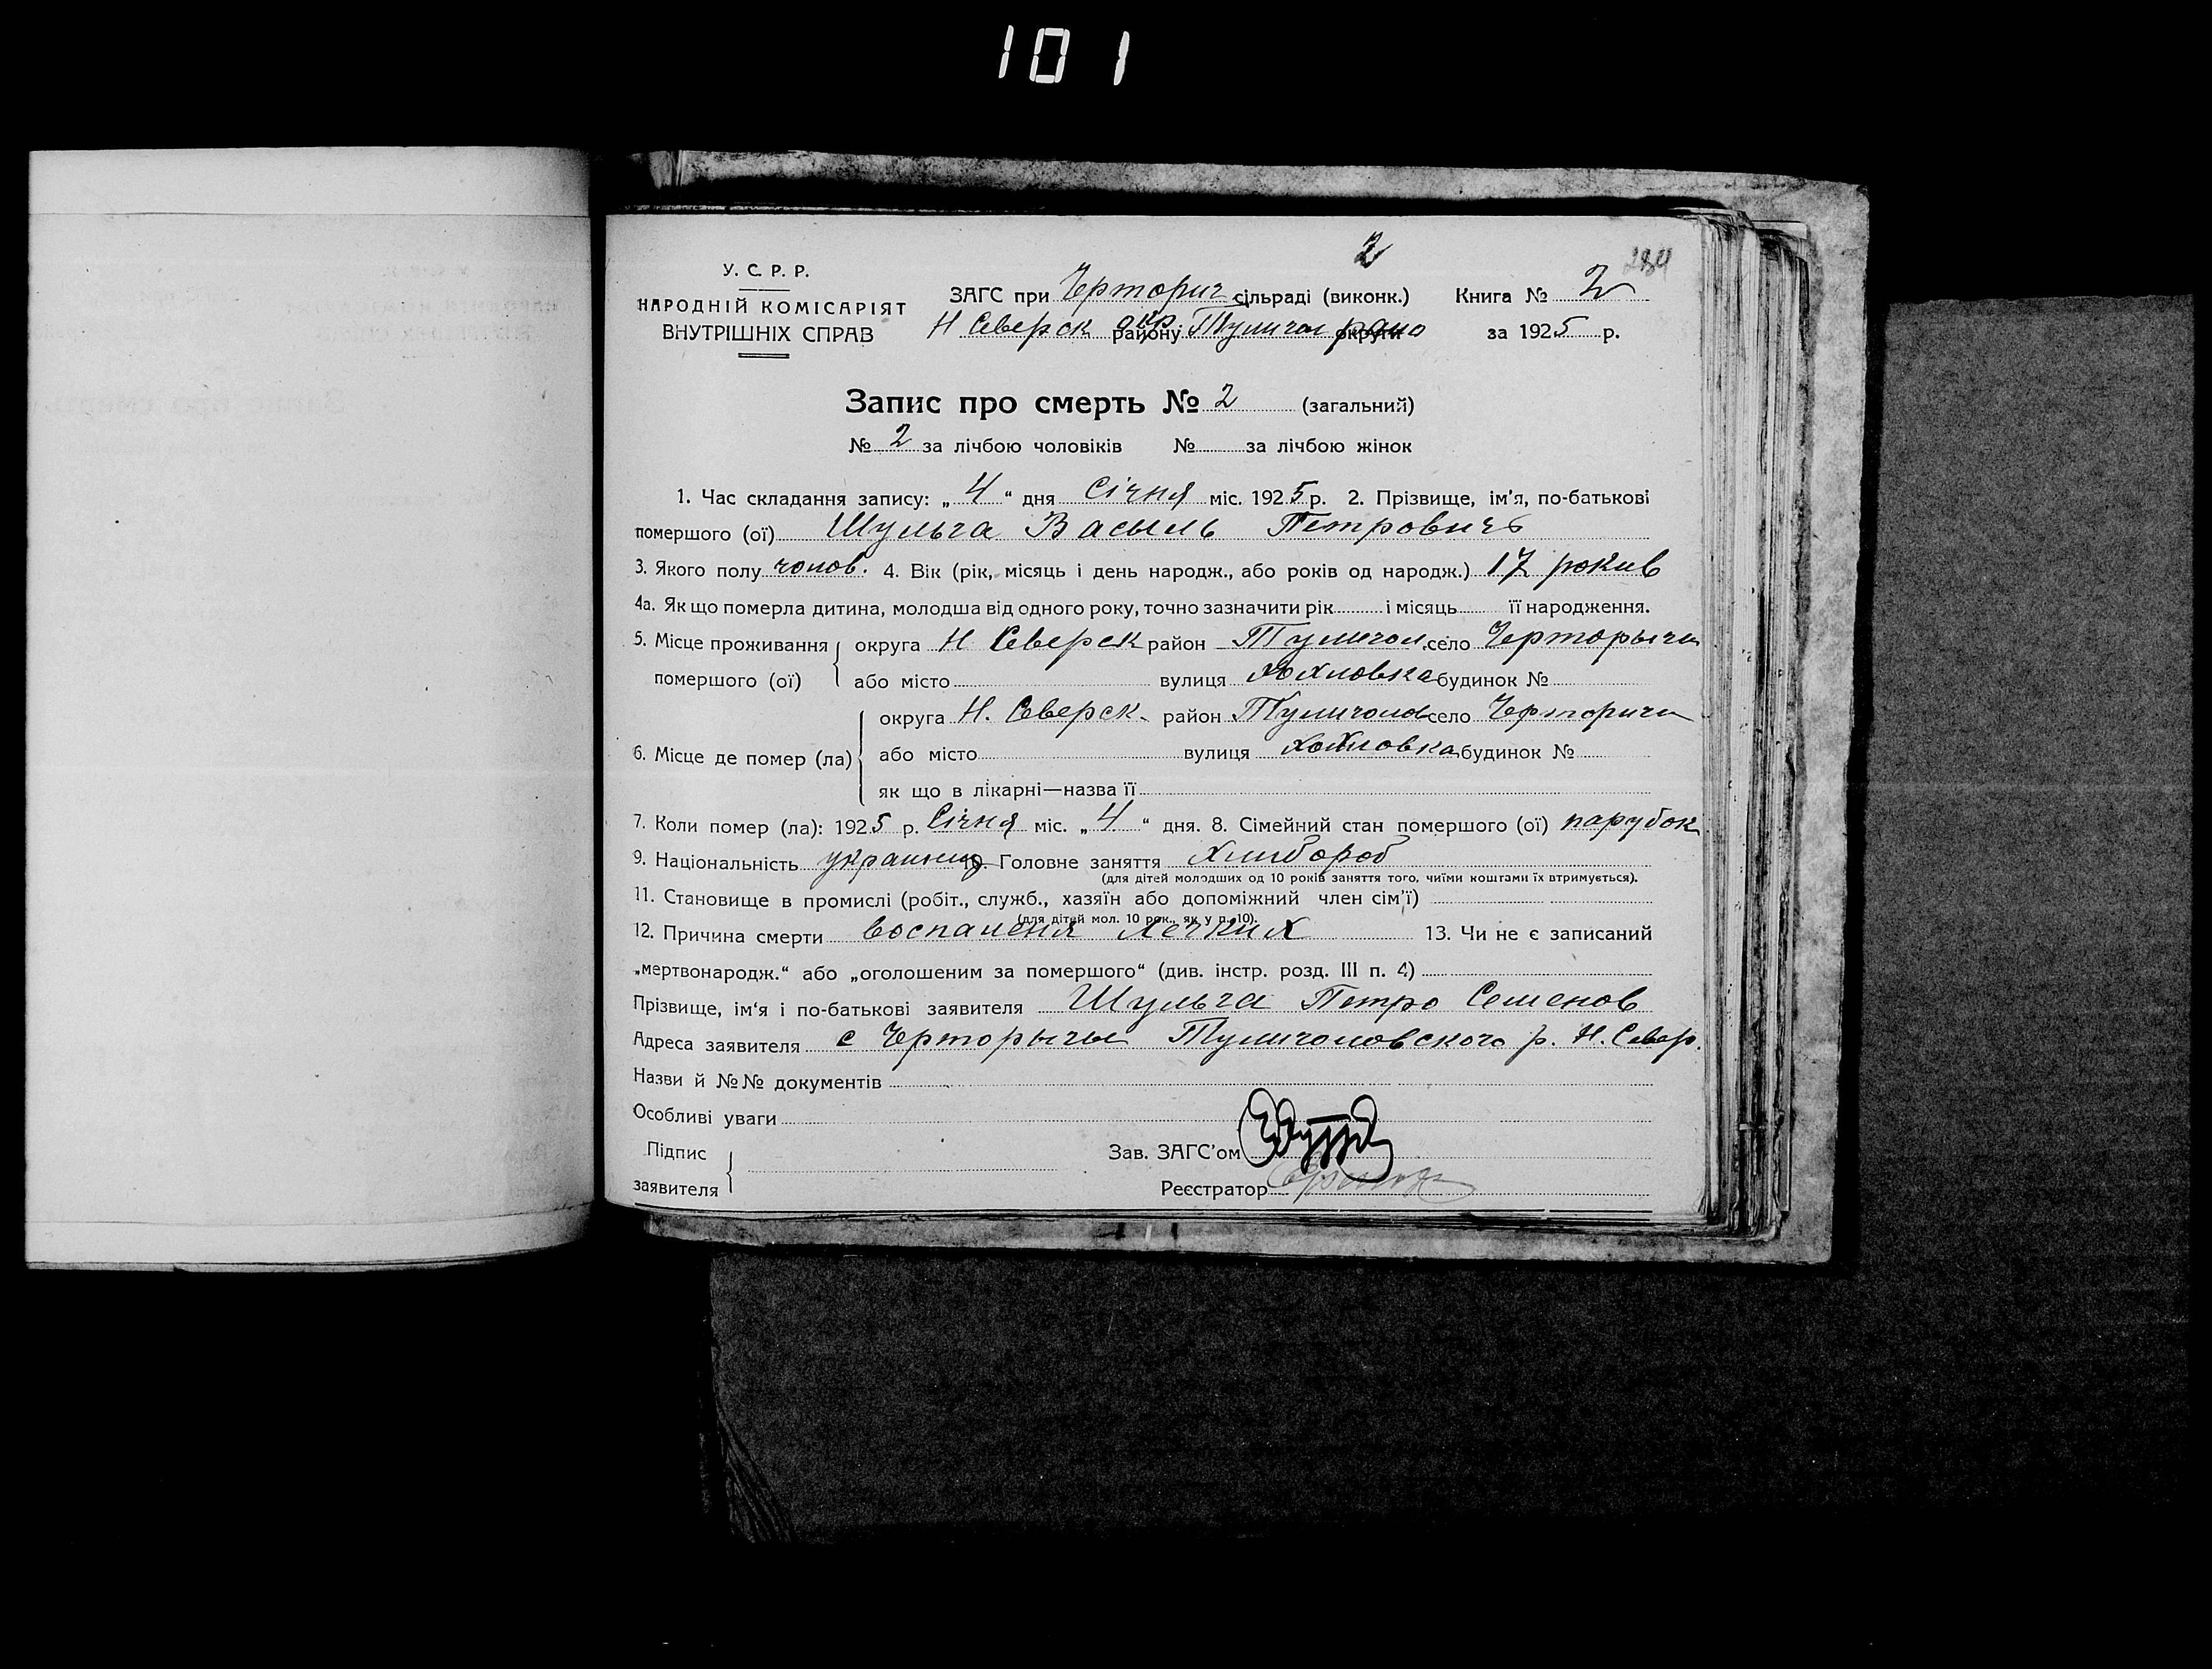 101
2
284
У. С. Р. Р.
НАРОДНІЙ КОМІСАРІЯТ
ВНУТРІШНІХ СПРАВ
ЗАГС при Черторич сільраді (виконк.) Книга № 2
Н Северск окр району Тулигол округи рано за 1925 р.
Запис про смерть № 2 (загальний)
№ 2 за лічбою чоловіків № за лічбою жінок
1. Час складання запису: „4“ дня Січня міс. 1925 р. 2. Прізвище, ім'я, по-батькові
помершого (ої) Шульга Василь Петровичъ
3. Якого полу чолов. 4. Вік (рік, місяць і день народж., або років од народж.) 17 рокив
4а. Як що померла дитина, молодша від одного року, точно зазначити рік і місяць її народження.
5. Місце проживання округа Н Северск район Тулигол. село Черторычи
помершого (ої) або місто вулиця Хохловка будинок №
округа Н. Северск. район Тулиголов село Черторичи
6. Місце де помер (ла) або місто вулиця Хохловка будинок №
як що в лікарні—назва її
7. Коли помер (ла): 1925 р. Січня міс. „4“ дня. 8. Сімейний стан помершого (ої) парубок
9. Національність украинец 10. Головне заняття Хлибороб
(для дітей молодших од 10 років заняття того, чиїми коштами їх втримується).
11. Становище в промислі (робіт., служб., хазяїн або допоміжний член сім'ї)
(для дітей мол. 10 рок., як у п. 10).
12. Причина смерти воспаления легких 13. Чи не є записаний
„мертвонародж.“ або „оголошеним за помершого“ (див. інстр. розд. III п. 4)
Прізвище, ім'я і по-батькові заявителя Шульга Петро Семенов
Адреса заявителя с Черторычы Тулиголовского р. Н. Север.
Назви й №№ документів
Особливі уваги
Підпис
заявителя
Зав. ЗАГС'ом
Реєстратор